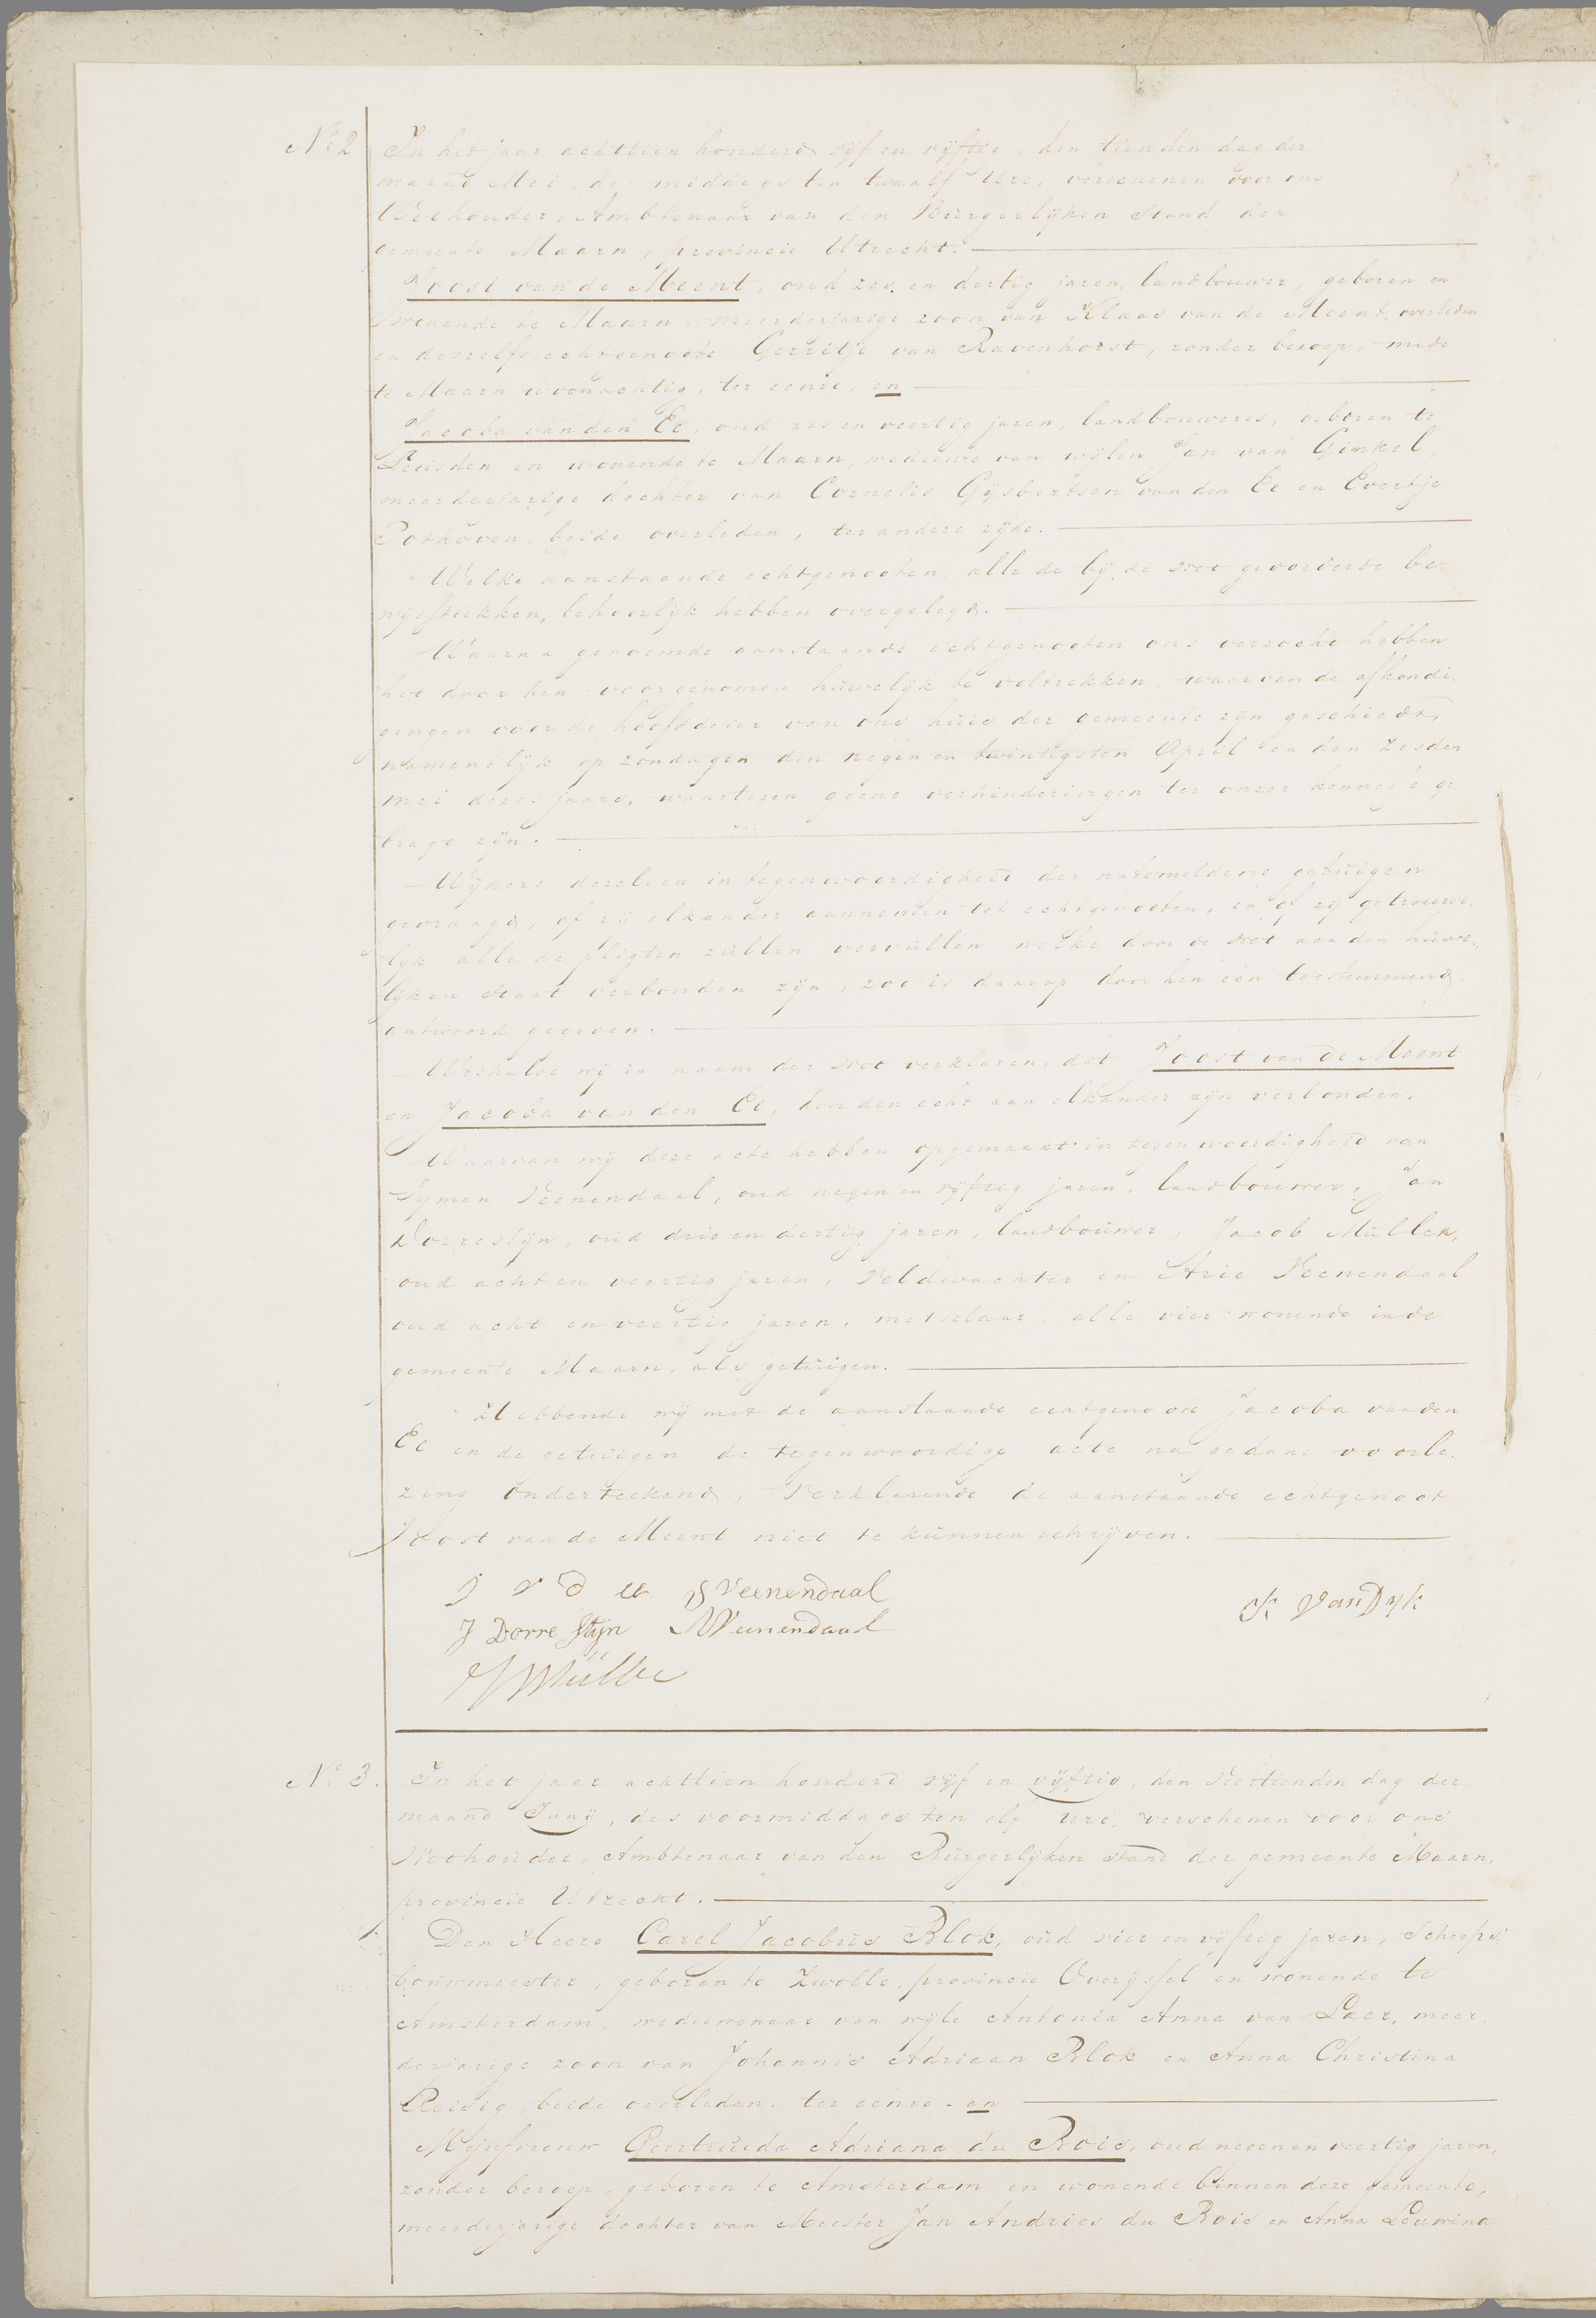 No 2 In het jaar achttien honderd vijf en vijftig, den tienden dag der
maand Mei des middags ten twaalf ure, verschenen voor ons
Wethouder, Ambtenaar van den Burgerlijken Stand der
gemeente Maarn, provincie Utrecht.
Joost van de Meent, oud zes en dertig jaren, landbouwer, geboren en
wonende te Maarn, meerderjarige zoon van Klaas van de Meent, overleden
en deszelfs echtgenoote Gerritje van Ravenhorst, zonder beroep, mede
te Maarn woonachtig, ter eenre, en
Jacoba van den Ee, oud zes en veertig jaren, landbouweres, geboren te
Leusden en wonende te Maarn, weduwe van wijlen Jan van Ginkel,
meerderjarige dochter van Cornelis Gijsbertsen van den Ee en Evertje
Pothoven, beide overleden, ter andere zijde.
Welke aanstaande echtgenooten, alle de bij de wet gevorderde be-
wijsstukken, behoorlijk hebben overgelegd.
Waarna genoemde aanstaande echtgenooten ons verzocht hebben
het door hen voorgenomen huwelijk te voltrekken, waarvan de afkondi-
gingen voor de hoofddeur van ons huis der gemeente zijn geschiedt,
namentlijk op zondagen den negen en twintigsten April en den zesden
mei dezes jaars, waartegen geene verhinderingen ter onzer kennesse ge
bragt zijn.
Wijders dezelven in tegenwoordigheid der natemeldene getuigen
gevraagd, of zij elkander aannemen tot echtgenooten, en of zij getrouwe-
lijk alle de pligten zullen vervullen welke door de wet aan den huwe-
lijken Staat verbonden zijn, zoo is daarop door hen een toestemmend
antwoord gegeven.
Weshalve wij in naam der wet verklaren, dat Joost van de Meent
en Jacoba van den Ee, door den echt aan elkander zijn verbonden.
Waarvan wij deze acte hebben opgemaakt in tegenwoordigheid van
Sijmen Veenendaal, oud negen en vijftig jaren, landbouwer, Jan
Dorrestijn, oud drie en dertig jaren, landbouwer, Jacob Muller,
oud acht en veertig jaren, Veldwachter en Arie Veenendaal
oud acht en veertig jaren, metselaar, alle vier wonende in de
gemeente Maarn, als getuigen.
Hebbende wij met de aanstaande echtgenoote Jacoba van den
Ee en de getuigen de tegenwoordige acte na gedane voorle-
zing onderteekend, Verklarende de aanstaande echtgenoot
Joost van de Meent niet te kunnen schrijven.
J v d ee S Veenendaal
K Van Dyk
J Dorre Stijn A Veenendaal
J Mulle
No 3. In het jaar achttien honderd vijf en vijftig, den Veertienden dag der
maand Junij, des voormiddags ten elf ure, verschenen voor ons
Wethouder, Ambtenaar van den Burgerlijken stand der gemeente Maarn,
provincie Utrecht.
Den Heere Carel Jacobus Blok, oud vier en vijftig jaren, Scheeps
bouwmeester, geboren te Zwolle, provincie Overijssel en wonende te
Amsterdam, weduwenaar van wijle Antonia Anna van Laer, meer-
derjarige zoon van Johannis Adriaan Blok en Anna Christina
Reisig, beide overleden, ter eenre - en
Mejufvrouw Geertruida Adriana du Bois, oud negen en veertig jaren,
zonder beroep geboren te Amsterdam en wonende binnen deze gemeente,
meerderjarige dochter van Meester Jan Andries du Bois en Anna Leuwina